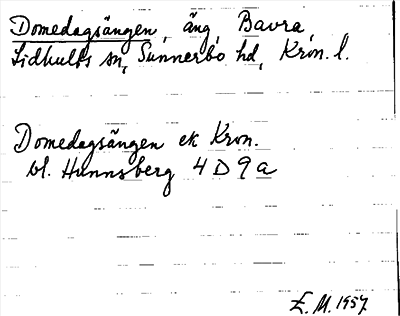 Domedagsängen, äng, Bavra,
Lidhults sn, Sunnerbo hd, Kron. l.
Domedagsängen ek Kron.
bl. Hunnsberg 4 D 9 a
E. M. 1957.